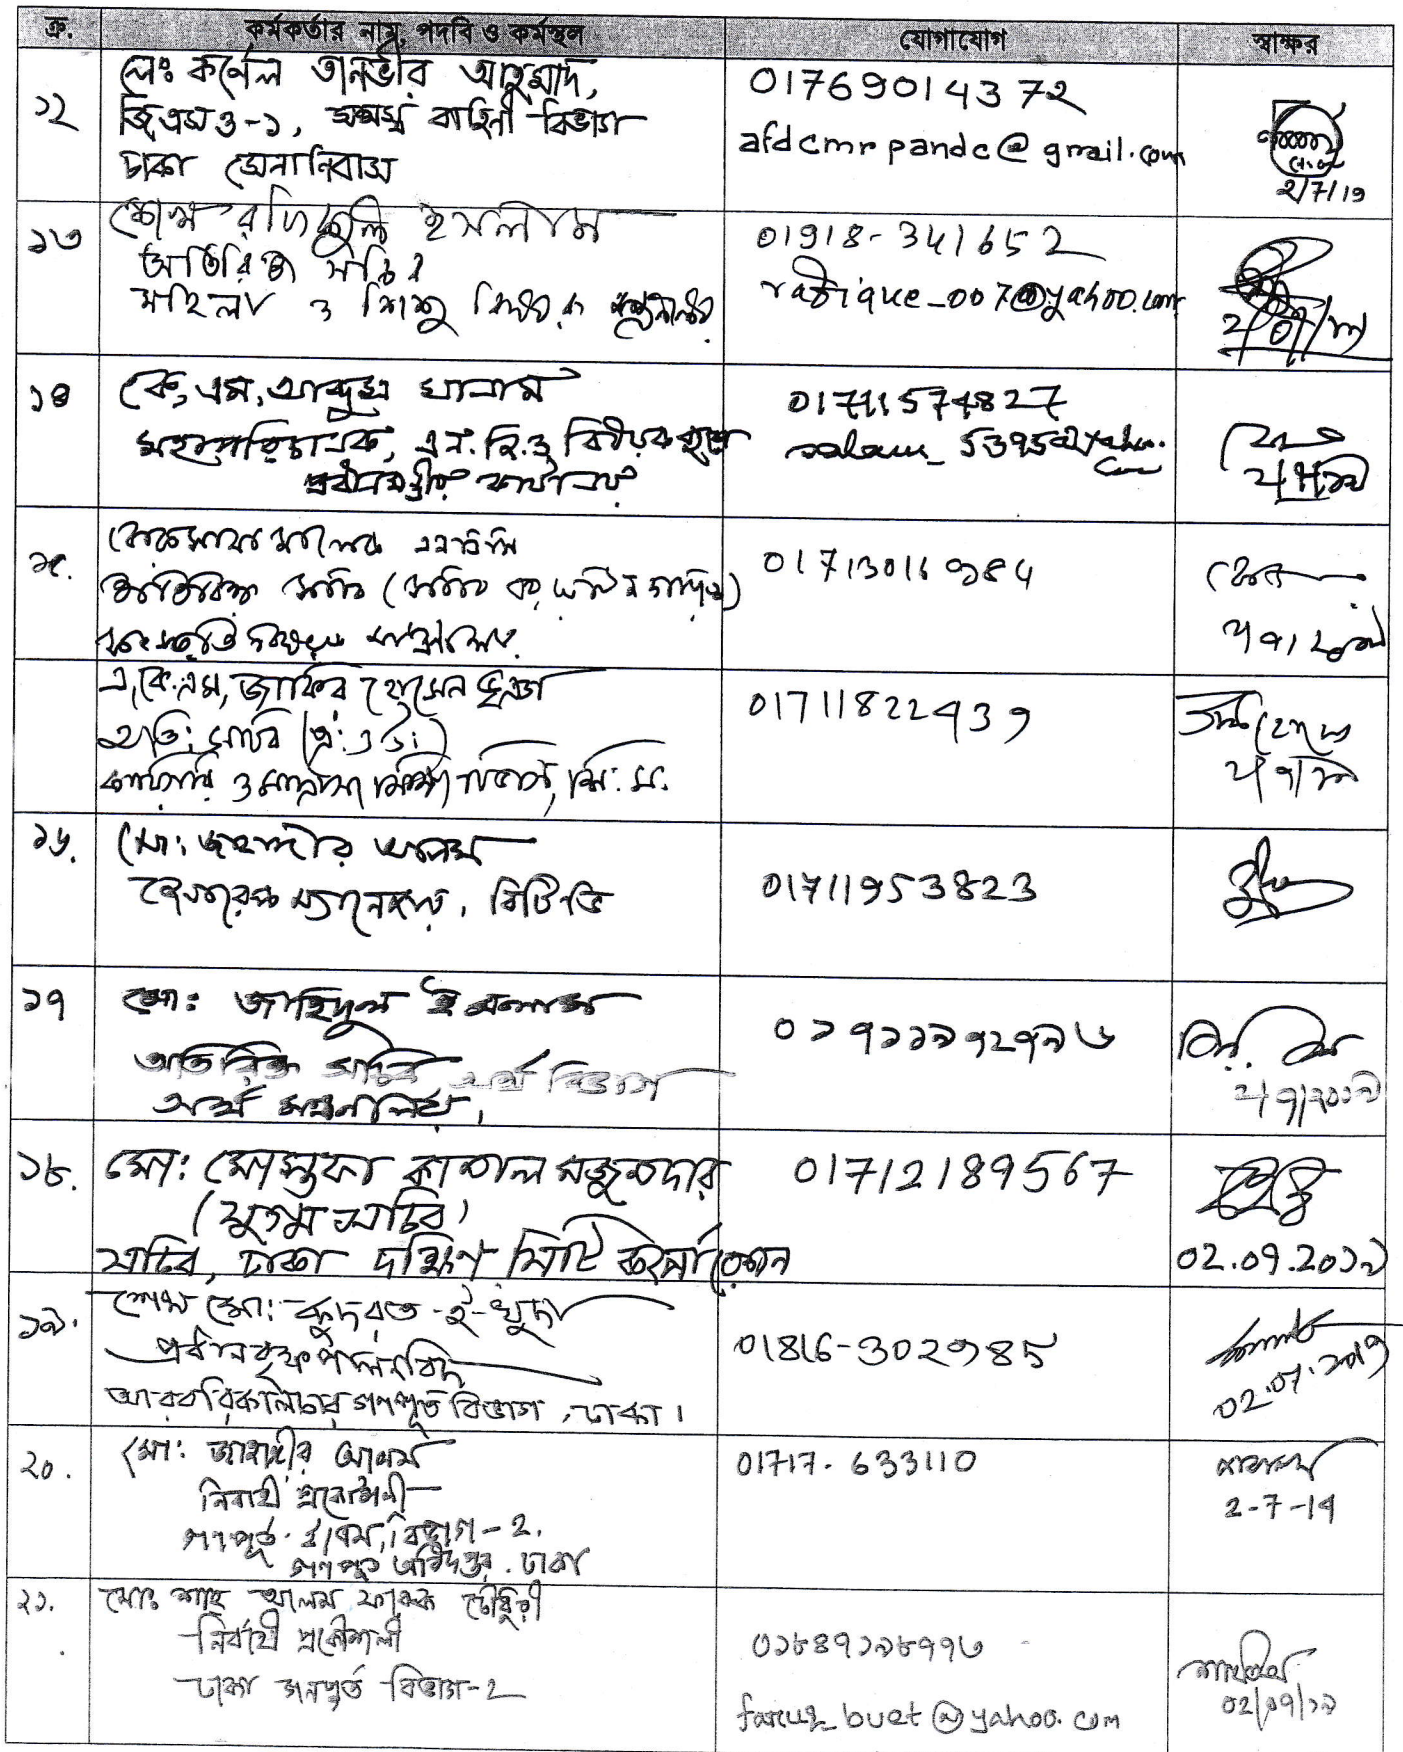 ক্র. কর্মকর্তার নাম, পদবি ও কর্মস্থল যোগাযোগ স্বাক্ষর
১২ লেঃ কর্নেল তানভীর আহমাদ,
জিএসও-১, সশস্ত্র বাহিনী বিভাগ
ঢাকা সেনানিবাস
01769014372
afdcmrpandc@gmail.com
2/7/19
১৩ শেখ রফিকুল ইসলাম
অতিরিক্ত সচিব
মহিলা ও শিশু বিষয়ক মন্ত্রণালয়
01918-341652
rafique_007@yahoo.com
১৪ কে, এম, আব্দুস সালাম
মহাপরিচালক, এন.জি.ও বিষয়ক ব্যুরো
প্রধানমন্ত্রীর কার্যালয়
01711574827
salam_5395@yahoo.
com
১৫.
অতিরিক্ত সচিব
সংস্কৃতি বিষয়ক মন্ত্রণালয়.
এ,কে,এম, জাকির হোসেন ভূঞা
অতি: সচিব
কারিগরি ও মাদ্রাসা শিক্ষা বিভাগ, শি: ম.
01711822439
১৬. মো: জাহাঙ্গীর আলম
জেনারেল ম্যানেজার, বিটিভি
01711953823
১৭ মো: জাহিদুল ইসলাম
অতিরিক্ত সচিব, অর্থ বিভাগ
অর্থ মন্ত্রণালয়,
০১৭১১১৭২৭৯৬
২/৭/২০১৯
১৮. মো: মোস্তফা কামাল মজুমদার
(যুগ্ম সচিব)
সচিব, ঢাকা দক্ষিণ সিটি কর্পোরেশন
01712189567
02.07.20১৯
১৯. শেখ মো: কুদরত-ই-খুদা
প্রধান বৃক্ষপালনবিদ
আরবরিকালচার গণপূর্ত বিভাগ, ঢাকা।
01816-302985
02.07.2019
২০. মো: জাহাঙ্গীর আলম
নির্বাহী প্রকৌশলী
গণপূর্ত ই/এম, বিভাগ-২.
গণপূর্ত অধিদপ্তর. ঢাকা
01717-633110
2-7-19
২১. মোঃ শাহ আলম ফারুক চৌধুরী
নির্বাহী প্রকৌশলী
ঢাকা গণপূর্ত বিভাগ-২
০১৮৪৭১৯৮৭৭৬
faruq_buet@yahoo.com
02/07/১৯